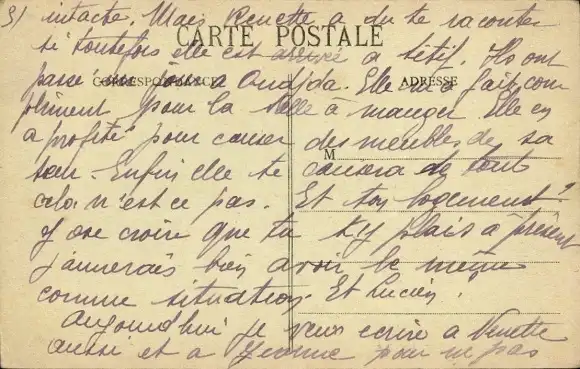 3) intacte. Mais Renette a du te raconter
CARTE POSTALE
si toutefois elle est arrivé a Sétif. Ils ont
CORRESPONDANCE
ADRESSE
passé un jour a Oudjda. Elle m'a fait com
pliment pour la salle à manger. Elle en
a profité pour causer des meubles de sa
M
sœur. Enfin elle te causera de tout
cela n'est ce pas. Et ton logement?
J'ose croire que tu t'y plais à présent
j'aimerais bien avoir le même
comme situation. Et Lucien.
Aujourd'hui je veux ecrire a Renette
aussi et a Yvonne pour ne pas